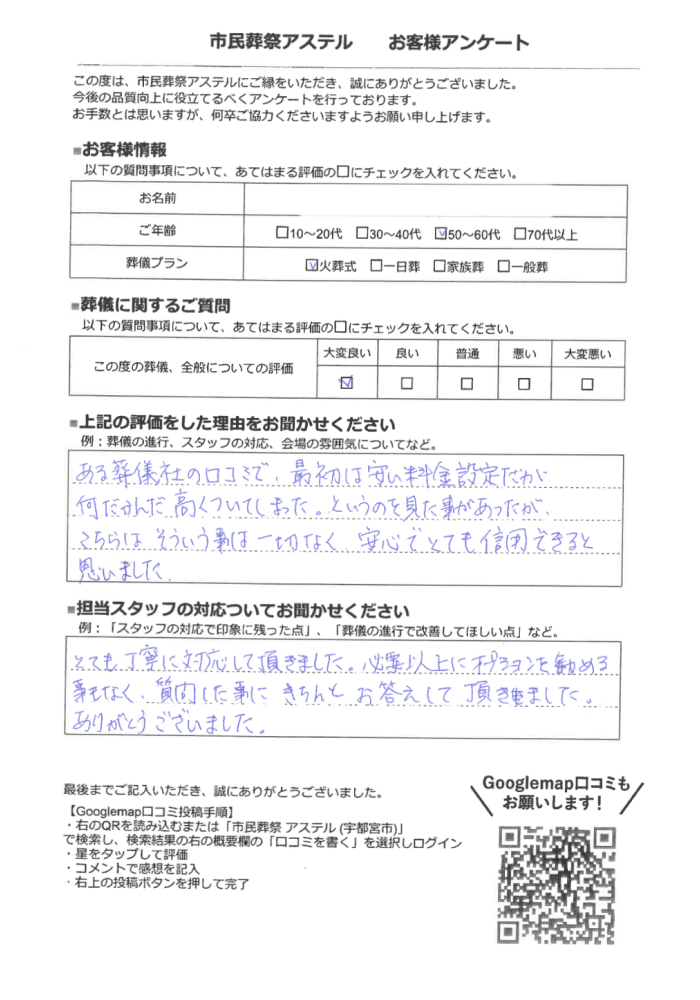 市民葬祭アステル　　お客様アンケート
この度は、市民葬祭アステルにご縁をいただき、誠にありがとうございました。
今後の品質向上に役立てるべくアンケートを行っております。
お手数とは思いますが、何卒ご協力くださいますようお願い申し上げます。
■お客様情報
以下の質問事項について、あてはまる評価の□にチェックを入れてください。
お名前
ご年齢　□10～20代　□30～40代　☑50～60代　□70代以上
葬儀プラン　☑火葬式　□一日葬　□家族葬　□一般葬
■葬儀に関するご質問
以下の質問事項について、あてはまる評価の□にチェックを入れてください。
大変良い　良い　普通　悪い　大変悪い
この度の葬儀、全般についての評価　☑　□　□　□　□
■上記の評価をした理由をお聞かせください
例：葬儀の進行、スタッフの対応、会場の雰囲気についてなど。
ある葬儀社の口コミで、最初は安い料金設定だが
何だかんだ高くついてしまった。というのを見た事があったが、
こちらはそういう事は一切なく、安心でとても信用できると
思いました。
■担当スタッフの対応ついてお聞かせください
例：「スタッフの対応で印象に残った点」、「葬儀の進行で改善してほしい点」など。
とても丁寧に対応して頂きました。必要以上にオプションを勧める
事もなく、質問した事にきちんとお答えして頂きました。
ありがとうございました。
最後までご記入いただき、誠にありがとうございました。
【Googlemap口コミ投稿手順】
・右のQRを読み込むまたは「市民葬祭 アステル (宇都宮市)」
で検索し、検索結果の右の概要欄の「口コミを書く」を選択しログイン
・星をタップして評価
・コメントで感想を記入
・右上の投稿ボタンを押して完了
Googlemap口コミも
お願いします！